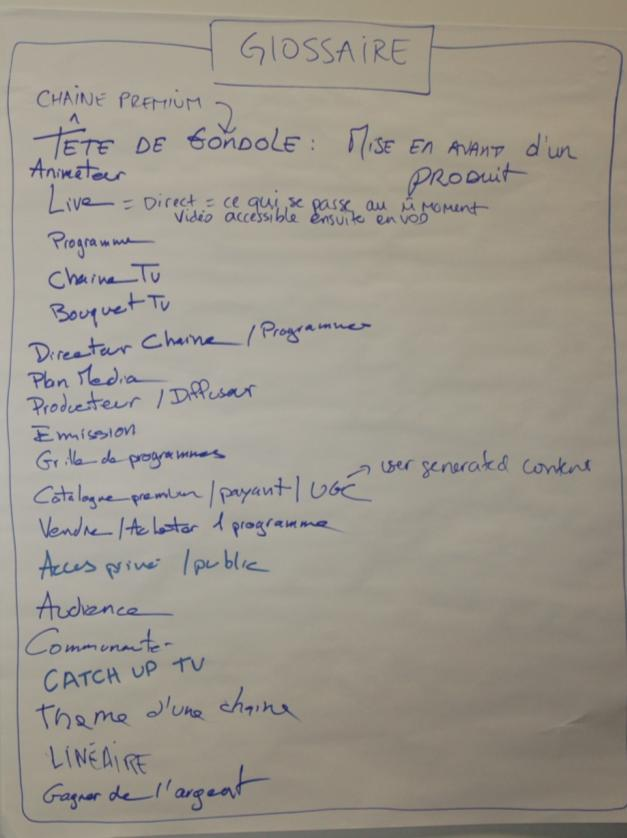 GLOSSAIRE
CHAINE PREMIUM
TÊTE DE GONDOLE : MISE EN AVANT d'un
PRODUIT
Animateur
Live = Direct = ce qui se passe au m̂ MOMENT
Vidéo accessible ensuite en VOD
Programme
Chaine TV
Bouquet TV
Directeur Chaine / Programmes
Plan Media
Producteur / Diffuseur
Emission
Grille de programmes
Catalogue premium / payant / UGC → user generated content
Vendre / Acheter 1 programme
Acces privé / public
Audience
Communauté
CATCH UP TV
Theme d'une chaine
LINÉAIRE
Gagner de l'argent